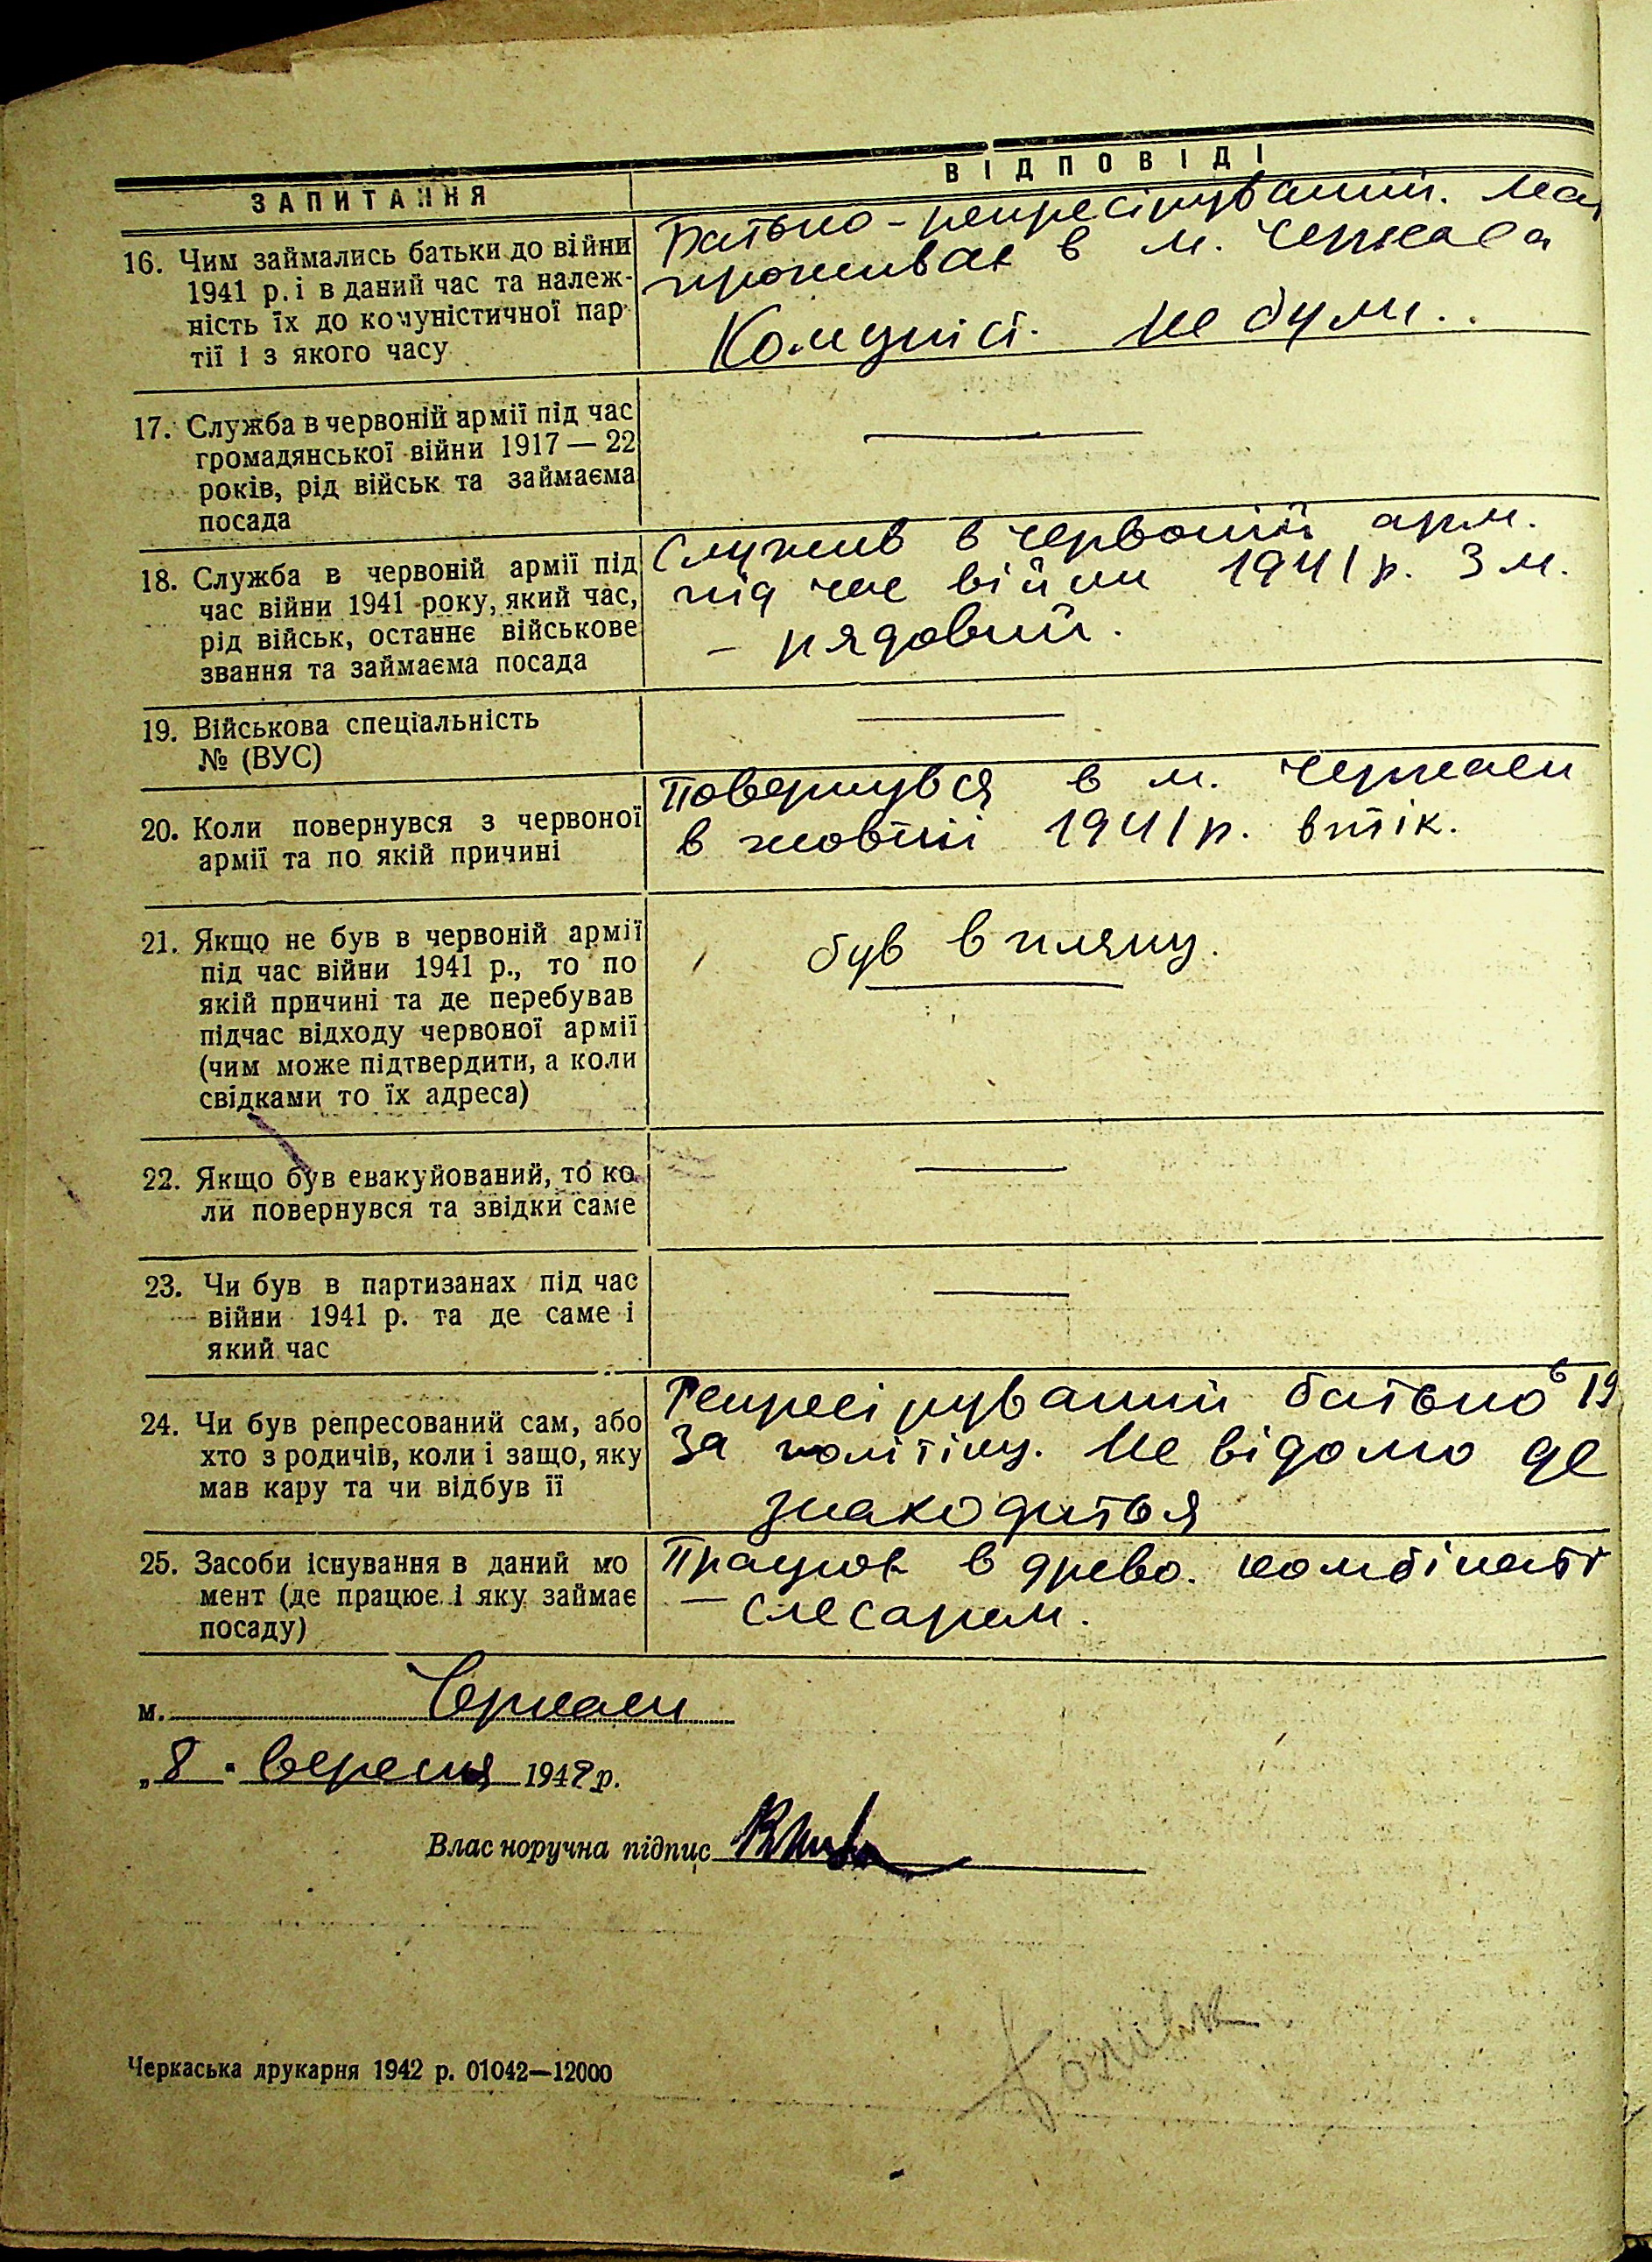 ЗАПИТАННЯ
ВІДПОВІДІ
16. Чим займались батьки до війни
1941 р. і в даний час та належ-
ність їх до комуністичної пар-
тії і з якого часу
Батько - репресіруваний.
проживає в м. Черкаса
Комуніст. не були..
17. Служба в червоній армії під час
громадянської війни 1917 — 22
років, рід військ та займаєма
посада
18. Служба в червоній армії під
час війни 1941 року, який час,
рід військ, останнє військове
звання та займаєма посада
Служив в червоній арм.
під час війни 1941 р. 3 м.
- рядовий.
19. Військова спеціальність
№ (ВУС)
20. Коли повернувся з червоної
армії та по якій причині
Повернувся в м. Черкаси
в жовтні 1941 р. втік.
21. Якщо не був в червоній армії
під час війни 1941 р., то по
якій причині та де перебував
підчас відходу червоної армії
(чим може підтвердити, а коли
свідками то їх адреса)
був в пляну.
22. Якщо був евакуйований, то ко
ли повернувся та звідки саме
23. Чи був в партизанах під час
війни 1941 р. та де саме і
який час
24. Чи був репресований сам, або
хто з родичів, коли і защо, яку
мав кару та чи відбув її
Репресірований батько в 19
За політіку. Не відомо де
знаходиться
25. Засоби існування в даний мо
мент (де працює і яку займає
посаду)
Працює в древо. комбінаті
— слесарем.
м. Черкаси
„8. вересня 1942 р.
Власноручна підпис
Черкаська друкарня 1942 р. 01042—12000